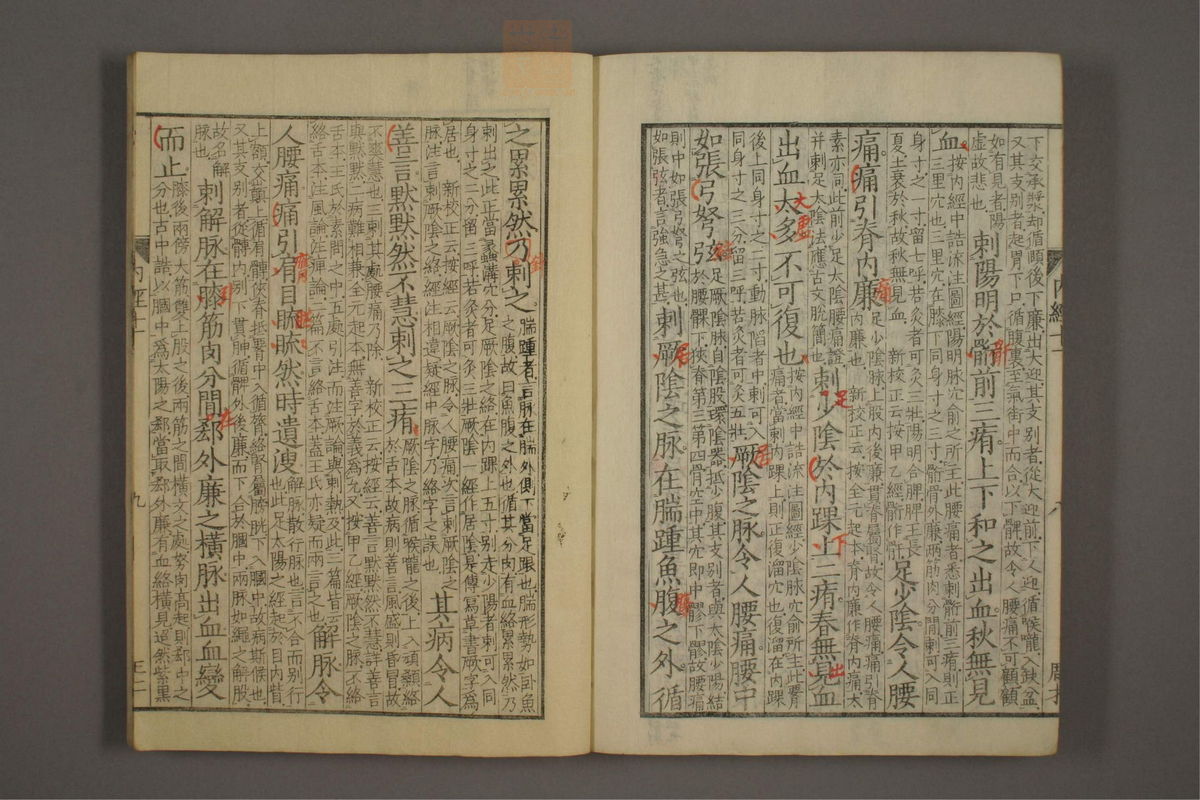 下交承漿却循頤後下廉出大迎其支別者從大迎前下人迎循喉嚨入缺盆
又其支別者起胃下口循腹裏至氣街中而合以下髀故令人腰痛不可顧顧
如有見者陽
虛故悲也
刺陽明於䯒前三痏上下和之出血秋無見
血
按內經中誥流注圖經陽明脉穴俞之所主此腰痛者悉刺䯒前三痏則正
三里穴也三里穴在膝下同身寸之三寸䯒骨外廉兩筋肉分間刺可入同
身寸之一寸留七呼若灸者可灸三壯陽明合脾脾王長
夏土衰於秋故秋無見血 新校正云按甲乙經䯒作骭
足少陰令人腰
痛痛引脊內廉
足少陰脉上股內後廉貫脊屬腎故令人腰痛痛引脊
內廉也 新校正云按全元起本脊內廉作脊內痛太
素亦同此前少足太陰腰痛證
并刺足太陰法應古文脫簡也
刺少陰於內踝上二痏春無見血
出血太多不可復也
按內經中誥流注圖經少陰脉穴俞所主此腰
痛者當刺內踝上則正復溜穴也復溜在內踝
後上同身寸之二寸動脉陷者中刺可入
同身寸之三分留三呼若灸者可灸五壯
厥陰之脉令人腰痛腰中
如張弓弩弦
足厥陰脉自陰股環陰器抵少腹其支別者與太陰少陽結
於腰髁下狹脊第三第四骨空中其穴即中髎下髎故腰痛
則中如張弓弩之弦也
如張弦者言強急之甚
刺厥陰之脉在腨踵魚腹之外循
內經十一
之累累然乃刺之
腨踵者言脉在腨外側下當足跟也腨形勢如卧魚
之腹故曰魚腹之外也循其分肉有血絡累累然乃
刺出之此正當蠡溝穴分足厥陰之絡在內踝上五寸別走少陽者刺可入同
身寸之二分留三呼若灸者可灸三壯厥陰一經作居陰是傳寫草書厥字爲
居也 新校正云按經云厥陰之脉令人腰痛次言刺厥陰之
脉注言刺厥陰之絡經注相違疑經中脉字乃絡字之誤也
其病令人
善言默默然不慧刺之三痏
厥陰之脉循喉嚨之後上入頏顙絡
於舌本故病則善言風盛則昏冒故
不爽慧也三刺其處腰痛乃除 新校正云按經云善言默默然不慧詳善言
與默默二病難相兼全元起本無善字於義爲允又按甲乙經厥陰之脉不絡
舌本王氏於素問之中五處引注而注厥論與刺熱及此三篇皆云
絡舌本注風論注痺論二篇不言絡舌本蓋王氏亦疑而兩言之也
解脉令
人腰痛痛引肩目䀮䀮然時遺溲
解脉散行脉也言不合而別行
也此足太陽之經起於目內眥
上額交巔上循肩髆俠脊抵腰中入循膂絡腎屬膀胱下入膕中故病斯候也
又其支別者從髆內別下貫胂循髀外後廉而下合於膕中兩脉如繩之解股
故名解
脉也
刺解脉在膝筋肉分間郄外廉之橫脉出血血變
而止
膝後兩傍大筋雙上股之後兩筋之間橫文之處努肉高起則郄中之
分也古中誥以膕中爲太陽之郄當取郄外廉有血絡橫見迢然紫黑
內經十一
九